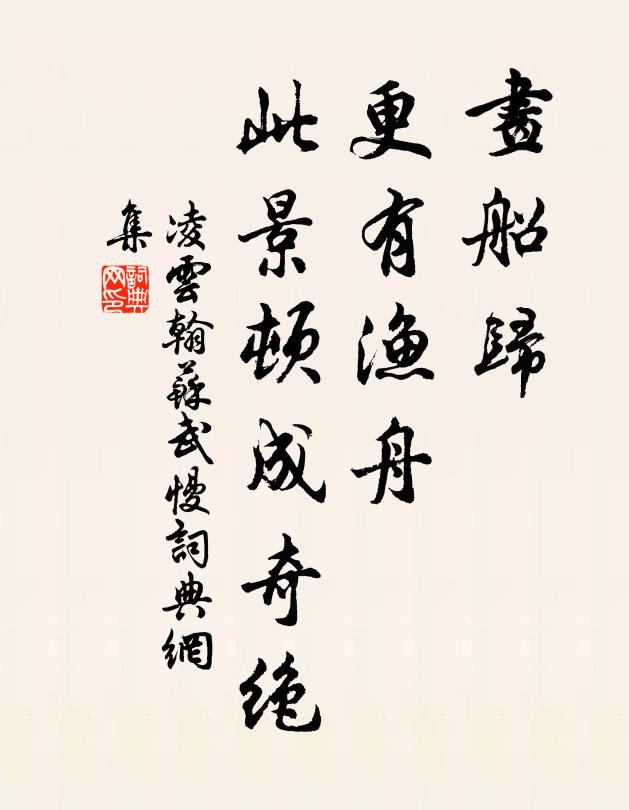 畫船歸
更有漁舟
此景頓成奇絕
凌雲翰蘇武慢詞典網
集
詞典網印